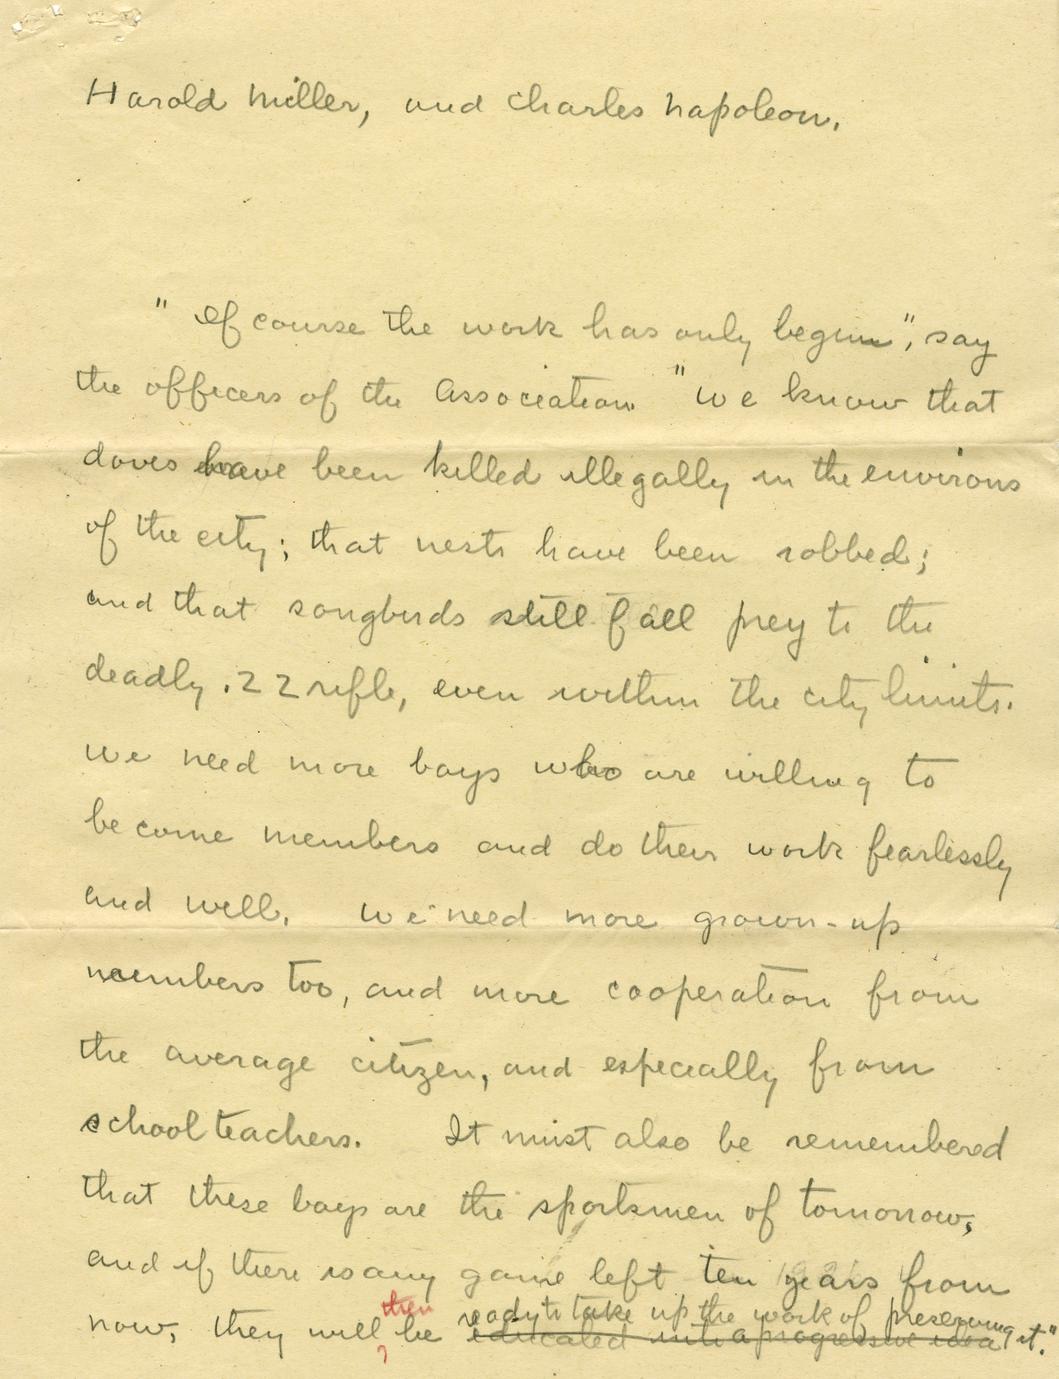 Harold Miller, and Charles Napoleon.
" Of course the work has only begun", say
the officers of the Association. "We know that
doves have been killed illegally in the environs
of the city; that nests have been robbed;
and that songbirds still fall prey to the
deadly .22 rifle, even within the city limits.
We need more boys who are willing to
become members and do their work fearlessly
and well. We need more grown-up
members too, and more cooperation from
the average citizen, and especially from
school teachers. It must also be remembered
that these boys are the sportsmen of tomorrow,
and if there is any game left ten years from
then ready to take up the work of preserving
now, they will be educated into a progressive idea it."